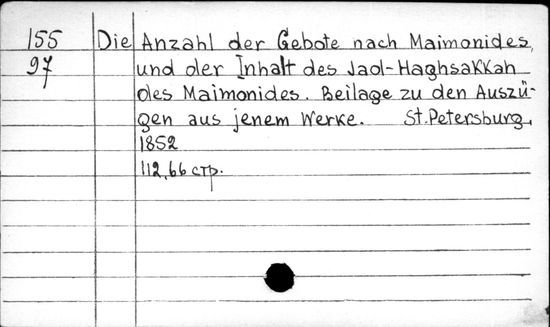 155 Die Anzahl der Gebote nach Maimonides,
97 und der Inhalt des Jad-Haghsakkah
des Maimonides. Beilage zu den Auszü-
gen aus jenem Werke. St. Petersburg,
1852
112, 66 стр.